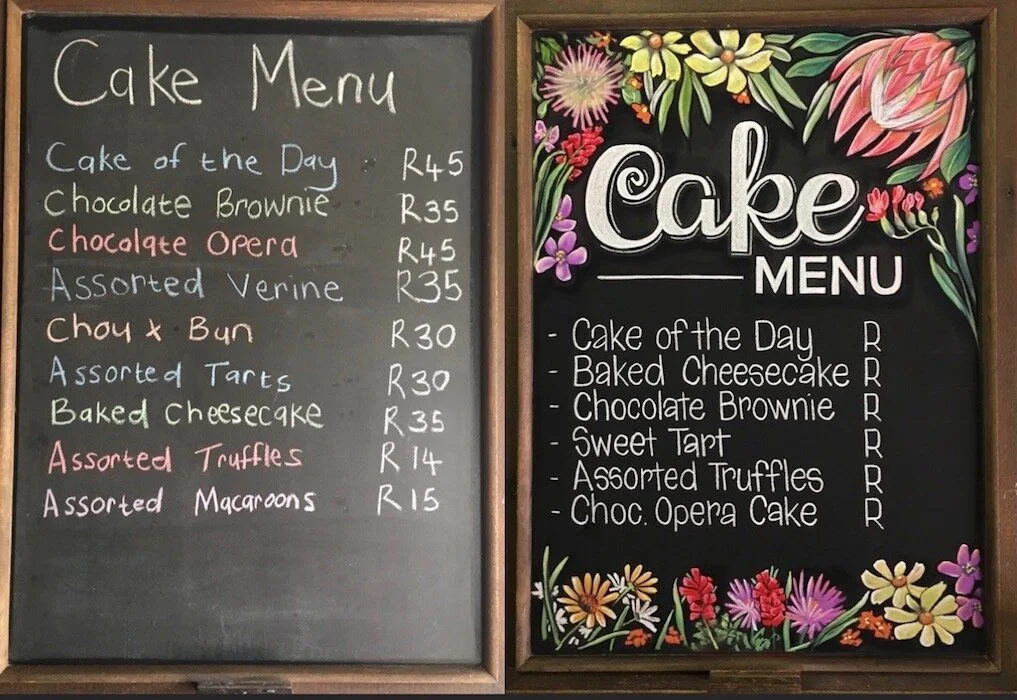 Cake Menu
Cake of the Day R45
Chocolate Brownie R35
Chocolate Opera R45
Assorted Verine R35
Choux Bun R30
Assorted Tarts R30
Baked Cheesecake R35
Assorted Truffles R14
Assorted Macaroons R15
Cake
MENU
- Cake of the Day R
- Baked Cheesecake R
- Chocolate Brownie R
- Sweet Tart R
- Assorted Truffles R
- Choc. Opera Cake R